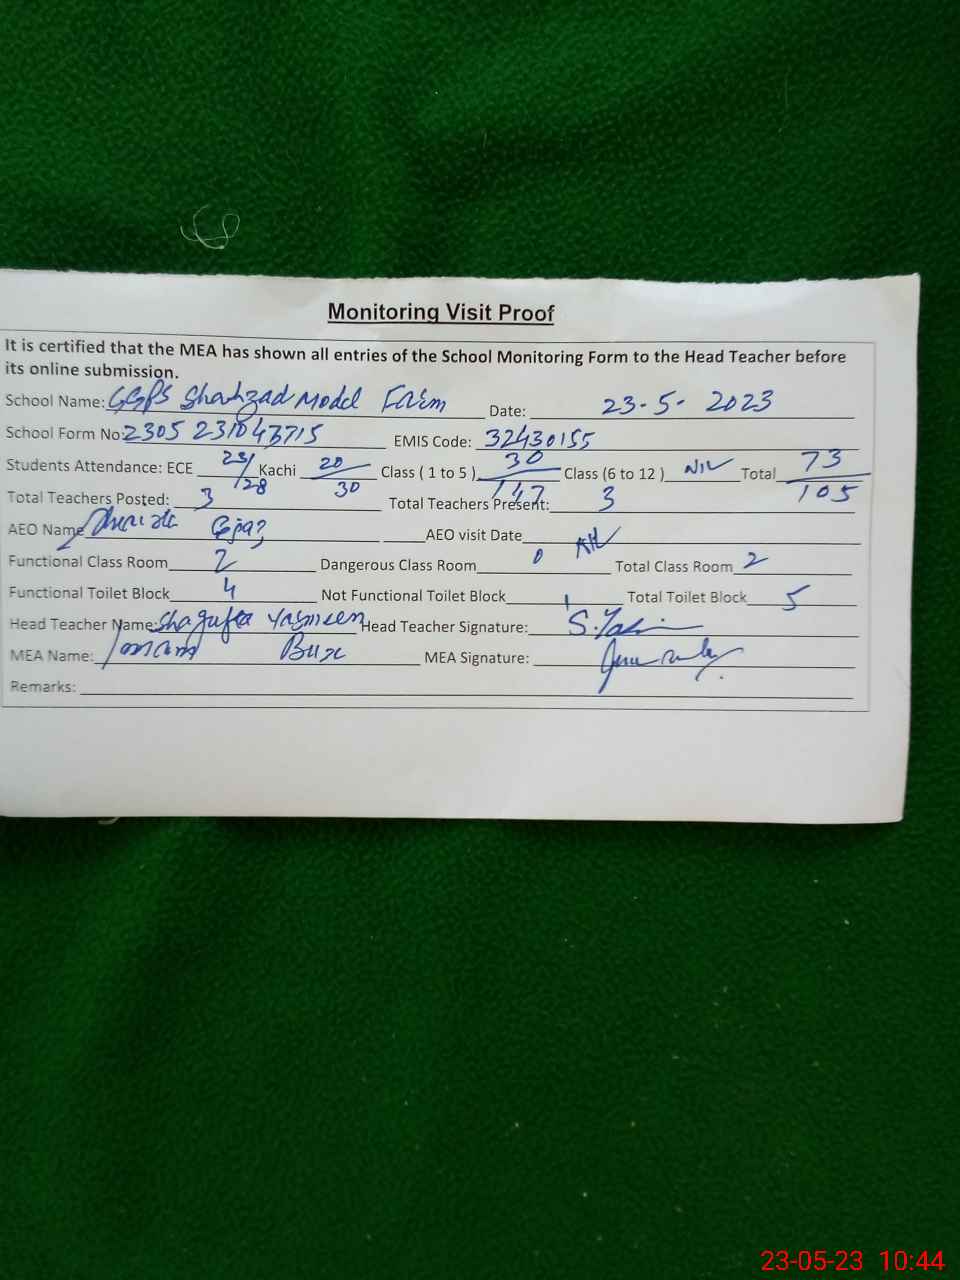 Monitoring Visit Proof
It is certified that the MEA has shown all entries of the School Monitoring Form to the Head Teacher before
its online submission.
School Name: GGPS Shahzad Model Farm Date: 23-5-2023
School Form No: 2305 231043715 EMIS Code: 32430155
Students Attendance: ECE 23/28 Kachi 20/30 Class ( 1 to 5 ) 30/147 Class (6 to 12 ) NIL Total 73/105
Total Teachers Posted: 3 Total Teachers Present: 3
AEO Name AEO visit Date
Functional Class Room 2 Dangerous Class Room 0 Total Class Room 2
Functional Toilet Block 4 Not Functional Toilet Block 1 Total Toilet Block 5
Head Teacher Name: Shagufta Yasmeen Head Teacher Signature:
MEA Name: Imam Bux MEA Signature:
Remarks:
23-05-23 10:44